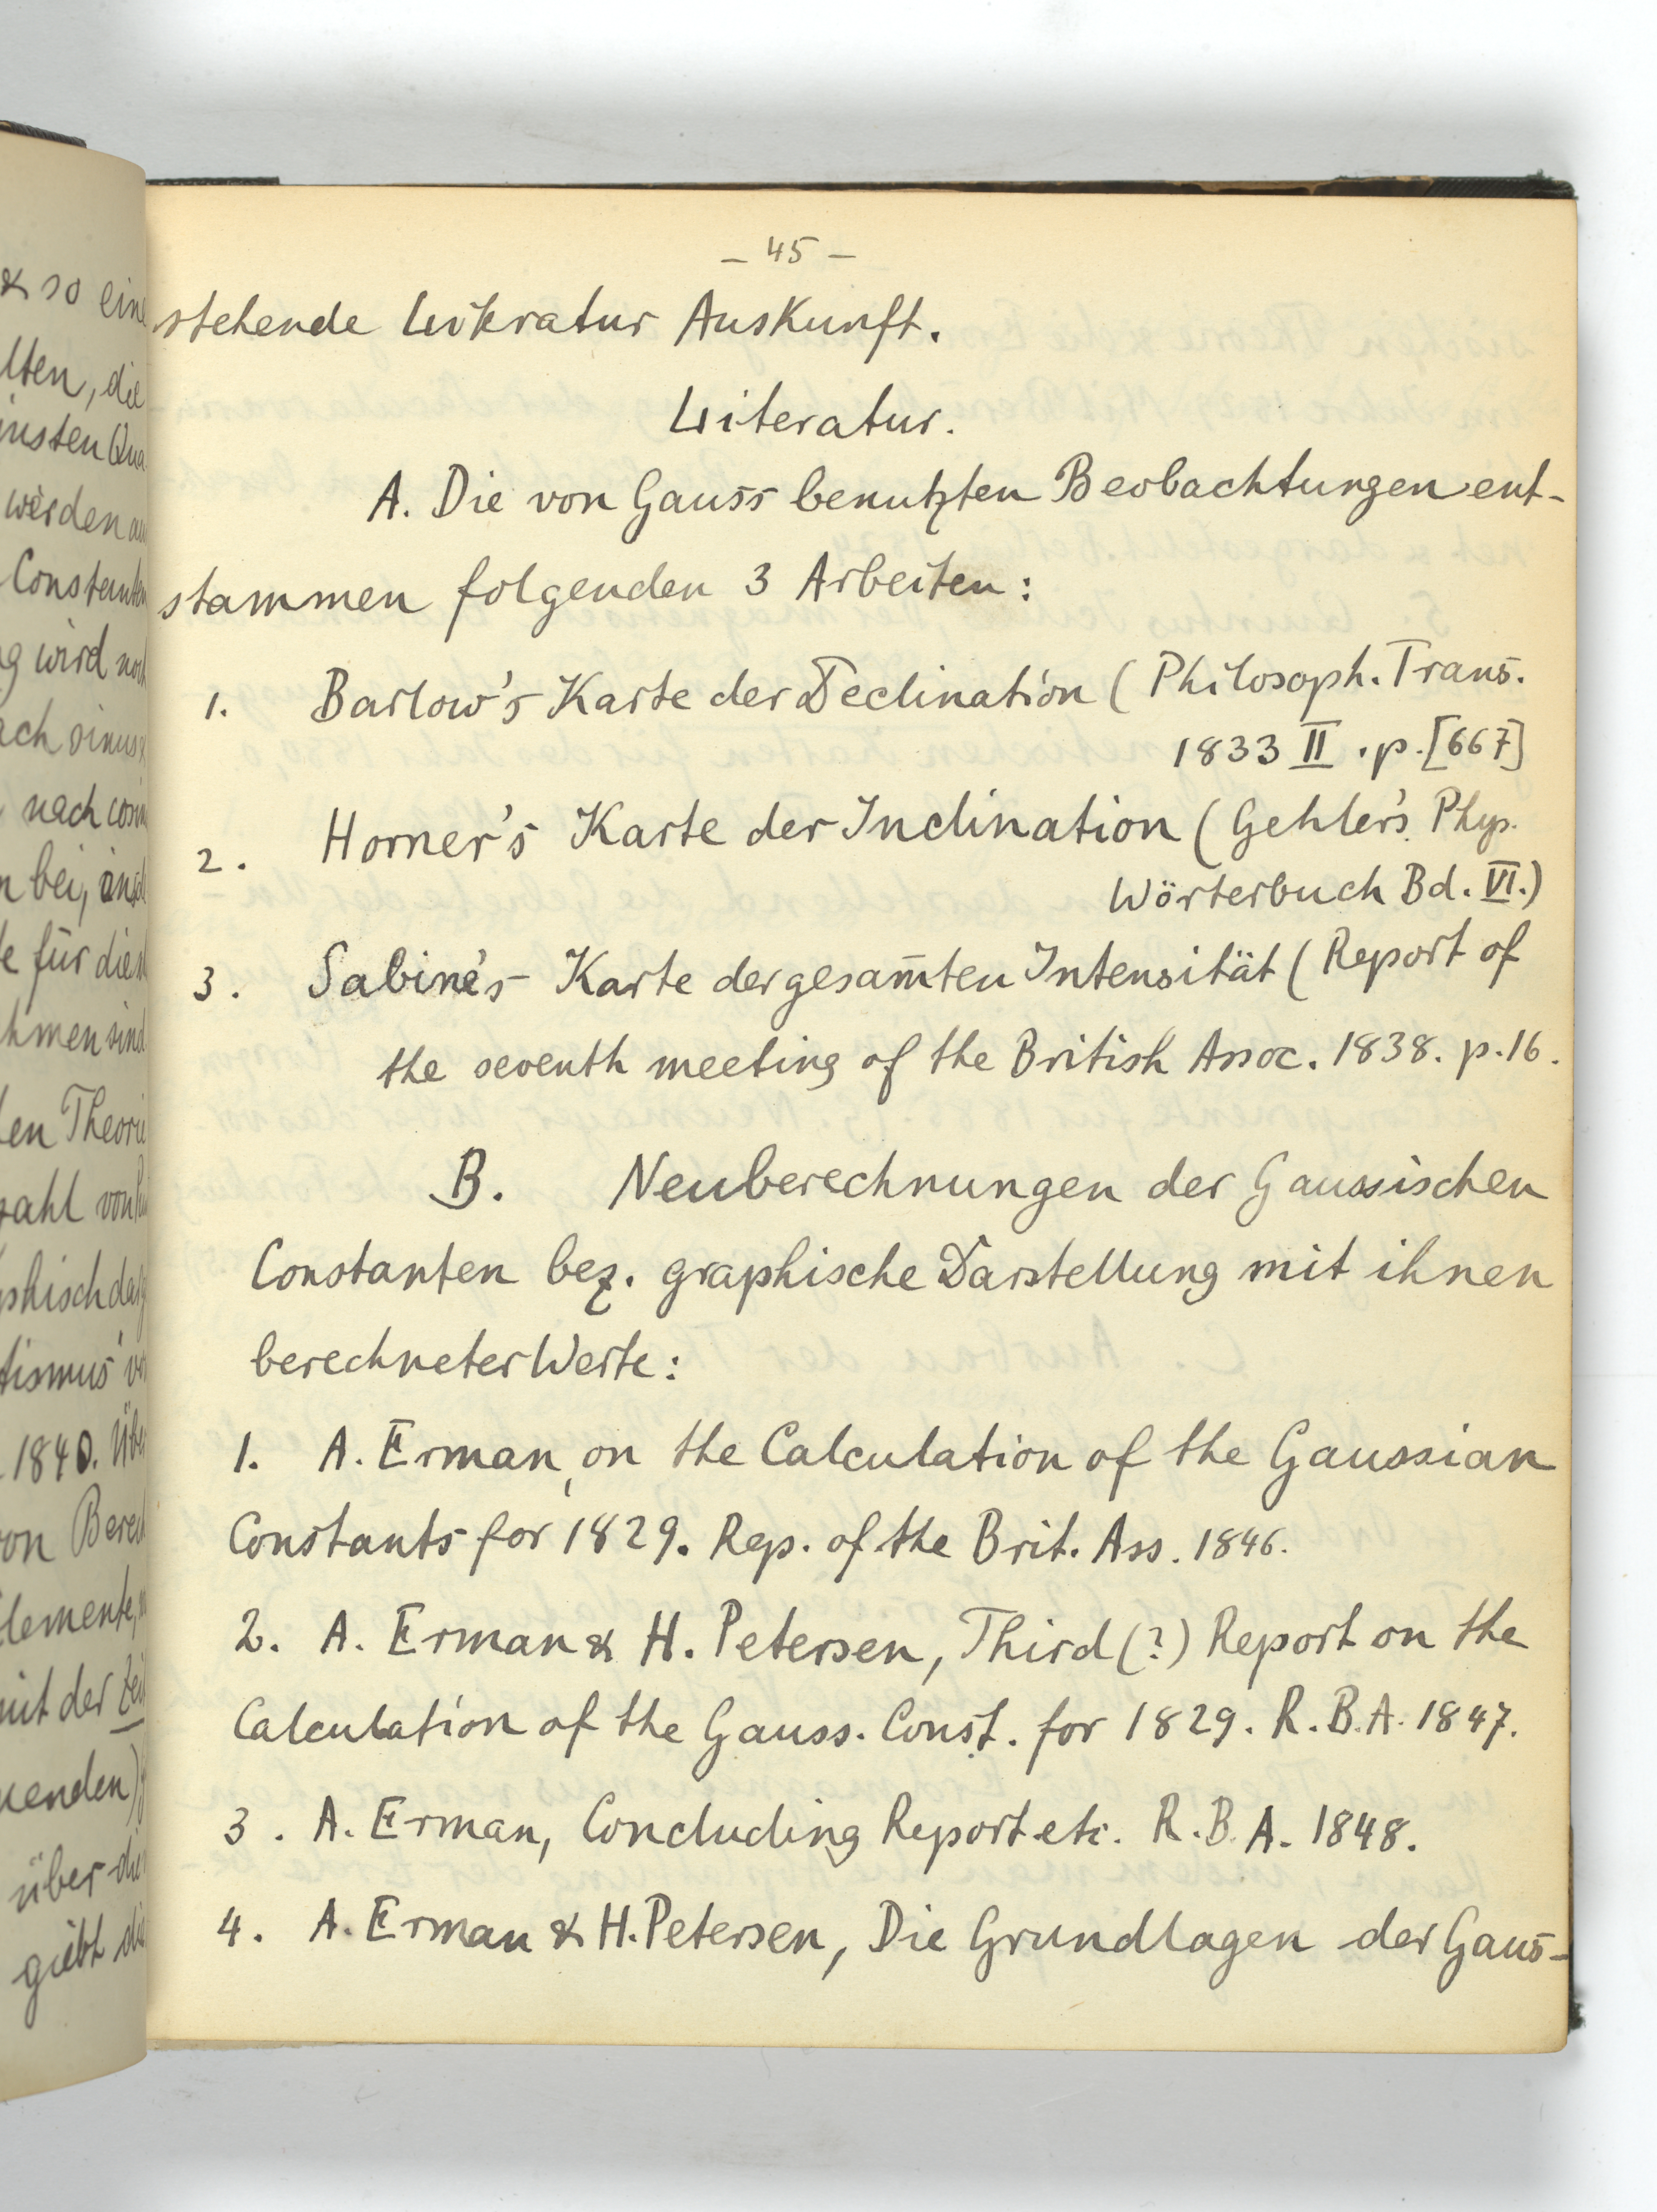 – 45 –
stehende Literatur Auskunft.
Literatur.
A. Die von Gauss benutzten Beobachtungen ent-
stammen folgenden 3 Arbeiten:
1. Barlow's Karte der Declination (Philosoph. Trans.
1833 II . p. [667]
2. Horner's Karte der Inclination (Gehler's Phys.
Wörterbuch Bd. VI.)
3. Sabine's Karte der gesam̄ten Intensität (Report of
the seventh meeting of the British Assoc. 1838. p. 16.
B. Neuberechnungen der Gaussischen
Constanten bez. graphische Darstellung mit ihnen
berechneter Werte:
1. A. Erman, on the Calculation of the Gaussian
Constants for 1829. Rep. of the Brit. Ass. 1846.
2. A. Erman & H. Petersen, Third (?) Report on the
Calculation of the Gauss. Const. for 1829. R. B. A. 1847.
3. A. Erman, Concluding Report etc. R. B. A. 1848.
4. A. Erman & H. Petersen, Die Grundlagen der Gaus-
& so eine
lten, die
werden
Constanten
g wird noch
nach
n bei,
e für
hmen sind
en Theorie
zahl von
tismus
1840.
von
Elemente,
mit der Zeit
über die
giebt